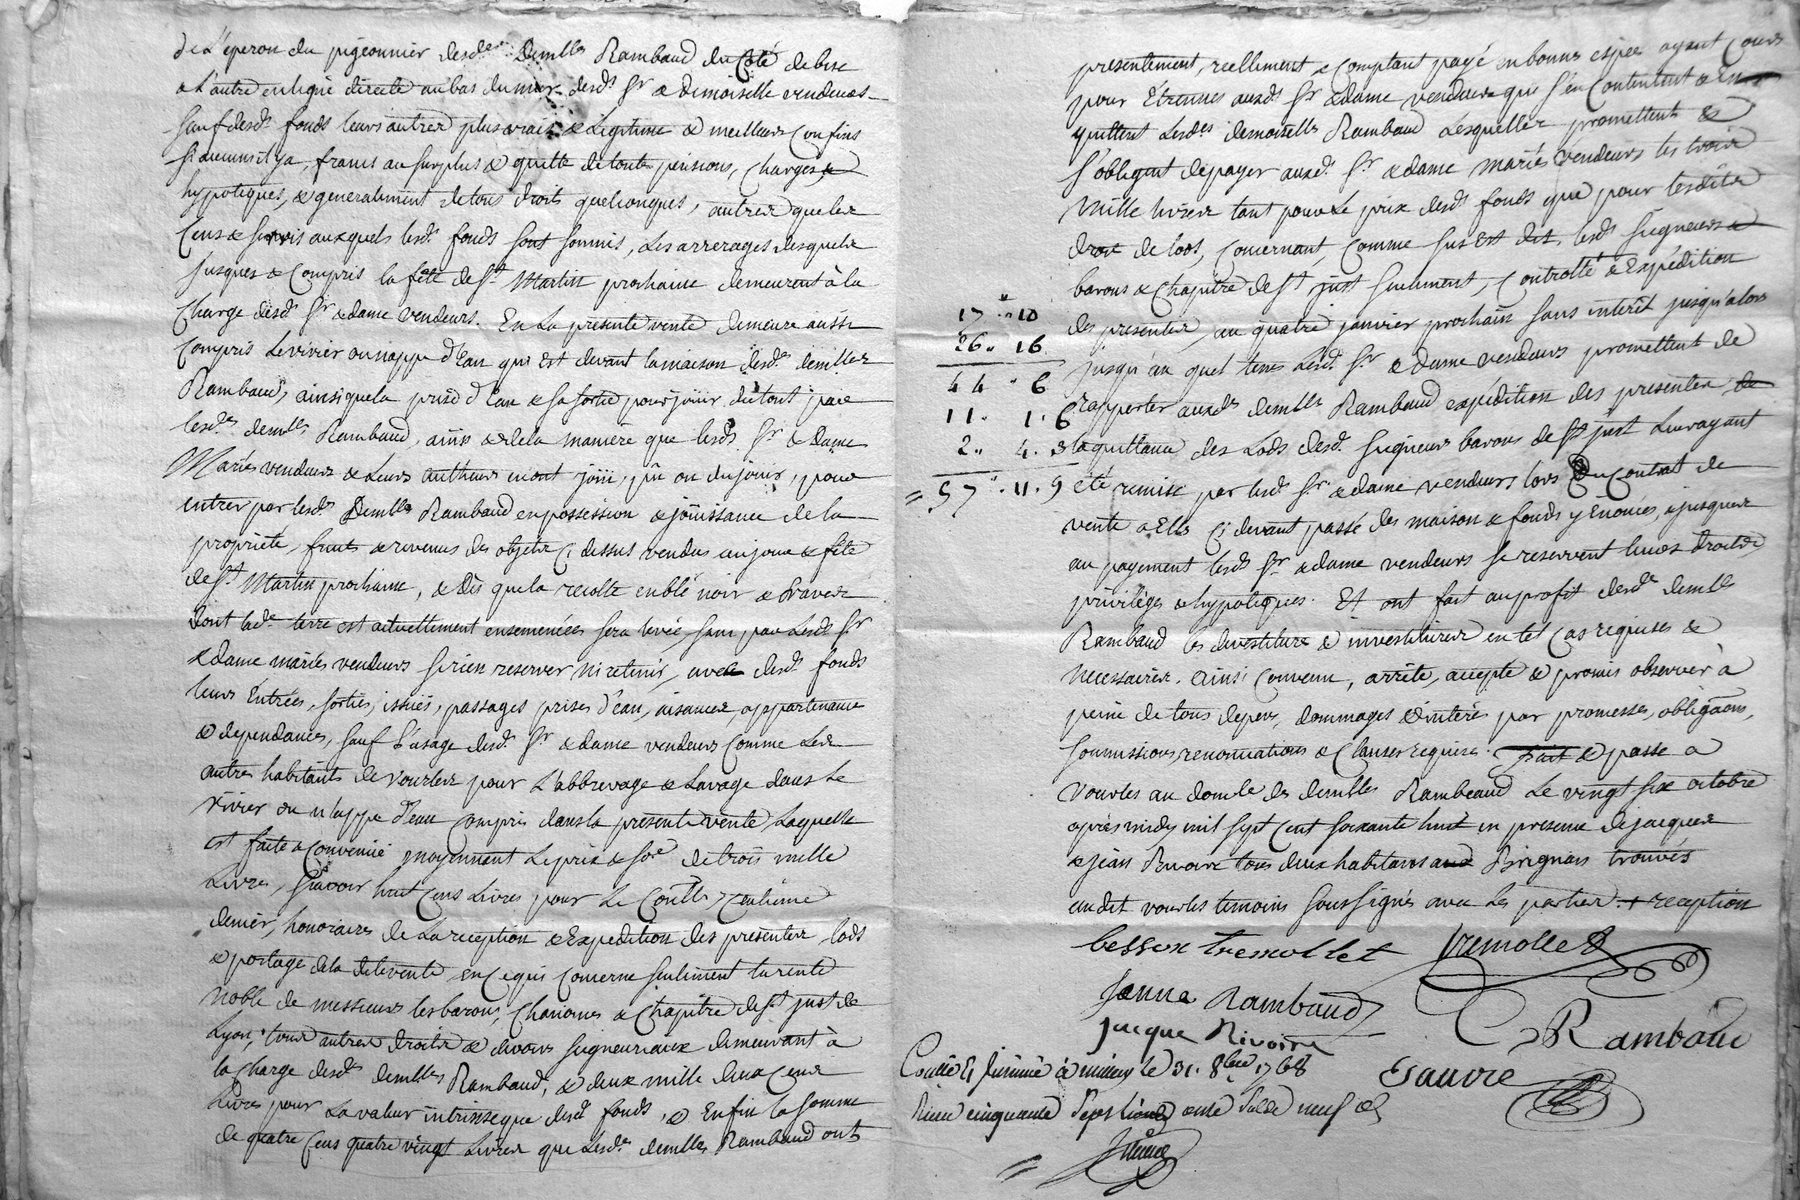 de L'eperon du pigeonnier desdes Demlles Rambaud du Coté de bise
& L'autre en ligne directe au bas du mur desds Sr & Demoiselle vendeurs
Sauf desds fonds leurs autres plus vrais & Legitimes & meilleurs Confins
Si aucuns il y a, francs au surplus & quitte de toutes pensions, Charges &
hypoteques, & generalement de tous droits quelconques, autres que les
Cens & Servis auxquels lesds fonds sont soumis, Les arrerages desquels
jusques & Compris la fête de St Martin prochaine demeurent à la
Charge desds Sr & dame vendeurs. En La presente vente demeure aussi
Compris Le vivier ou nappe d'Eau qui Est devant la maison desdes demlles
Rambaud, ainsi que la prise d'Eau & sa sortie pour jouir du tout par
lesdes demlles Rambaud, ainsi & de la maniere que lesds Sr & dame
Mariés vendeurs & Leurs Autheurs en ont joüi, pû ou dû joüir, pour
entrer par lesdes Demlles Rambaud en possession & joüissance de la
proprieté, fruits & revenus des objets Ci dessus vendus au jour & fête
de St Martin prochaine, & dès que la recolte en blé noir & raves
Dont lade terre est actuellement ensemencée sera levée, sans par Lesds Sr
& dame mariés vendeurs se rien reserver ni retenir, avec desds fonds
leurs Entrées, sorties, issuës, passages prises d'eau, aisances, appartenances
& dependances, sauf L'usage desds Sr & dame vendeurs Comme Les
autres habitants de vourles pour L'abbrevage & Lavage dans Le
vivier ou nappe d'Eau Compris dans la presente vente, Laquelle
est faite & Convenuë moyennant Le prix & Sôe de trois mille
Livres, Sçavoir huit Cens Livres pour Le Conlle, centieme
denier, honoraires de La reception & Expedition des presentes, lods
& portage de la dite vente, en Ce qui Concerne seulement la rente
Noble de messieurs les barons, Chanoines & Chapitre de St just de
Lyon, tous autres droits & devoirs seigneuriaux demeurant à
la Charge desdes demlles Rambaud, & deux mille deux Cens
Livres pour La valeur intrinseque desds fonds, & Enfin la somme
de quatre Cens quatre vingt Livres que Lesdes demlles Rambaud ont
presentement, reellement & Comptant payé en bonnes especes ayant Cours
pour Etrennes auxds Sr & dame vendeurs qui s'en Contentent & en
quittent Lesdes demoiselles Rambaud Lesquelles promettent &
s'obligent de payer auxds Sr & dame mariés vendeurs les trois
Mille livres tant pour Le prix desds fonds que pour lesdits
droits de lods, Concernant, Comme sus Est dit, lesds seigneurs
barons & Chapitre de St just seulement, Controlle & Expédition
des presentes, au quatre janvier prochain sans interêt jusqu'alors
jusqu'au quel tems Lesds Sr & Dame vendeurs promettent de
rapporter auxdes demlles Rambaud expédition des presentes
la quittance des Lods desds seigneurs barons de St just Leur ayant
été remise par lesds Sr & dame vendeurs, lors du Contrat de
vente à Elles Ci devant passé des maison & fonds y Enoncés, & jusques
au payement lesds Sr & dame vendeurs se reservent leurs droits
privileges & hypoteques. Et ont fait au profit desdes demlles
Rambaud les devestitures & investitures en tel Cas requises &
Necessaires. Ainsi Convenu, arrêté, accepté & promis observer à
peine de tous depens, dommages & interês par promesses, obligaons,
soumissions renonciations & Clauses requises. Fait & passé à
Vourles au domlle des demlles Rambeaud Le vingt six octobre
après midy mil sept Cent soixante huit en presence de jacques
& jean Rivoire tous deux habitans Brignais trouvés
audit vourles temoins soussignés avec Les parties. + reception
17 " 10
26 " 16
44 " 6
11 " 1 . 6
2 " 4 . 3
= 57 " 11 . 9
besson tremollet Tremollet
Janne Rambaud C Rambaud
jacque Rivoire
Esauvre
Conllé & Insinué à le 31. 8bre 1768
Reçu cinquante sept livres onze sols neuf d